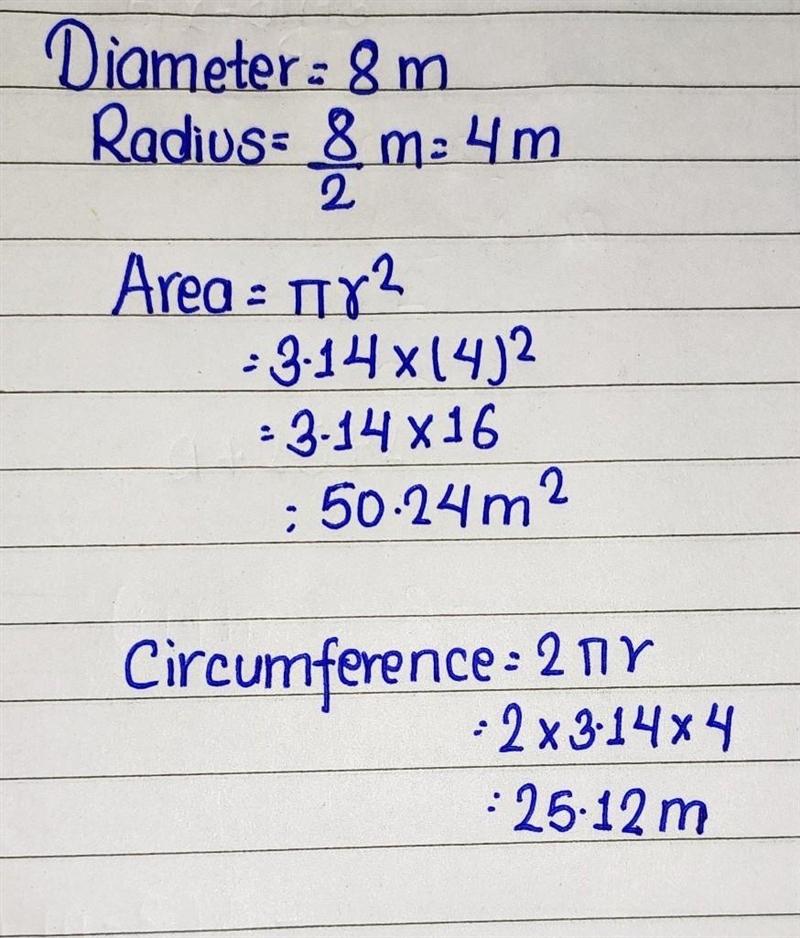 Diameter = 8 m
Radius = 8/2 m = 4 m
Area = πr²
= 3·14 × (4)²
= 3·14 × 16
= 50·24 m²
Circumference = 2πr
= 2 × 3·14 × 4
= 25·12 m